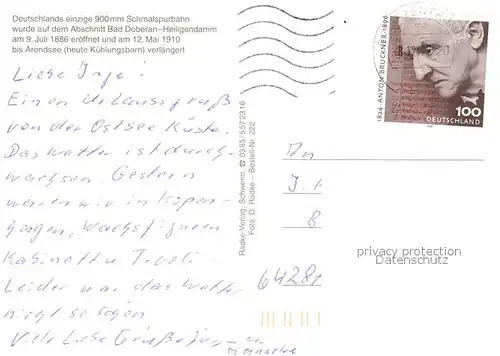 Deutschlands einzige 900 mm Schmalspurbahn
wurde auf dem Abschnitt Bad Doberan–Heiligendamm
am 9. Juli 1886 eröffnet und am 12. Mai 1910
bis Arendsee (heute Kühlungsborn) verlängert
Liebe Inge!
Einen Urlaussgruß
von der Ostsee Küste.
Das wetter ist durch-
wachsen. Gestern
waren wir in Kopen-
hagen, Wachsfiguren
Kabinett u. Tivoli.
Leider war das Wetter
nicht so schön
Viele Liebe Grüße
Radke-Verlag, Schwerin, ☎ 0385/5572316
Foto: D. Radke – Bestell-Nr. 222
1824 · ANTON BRUCKNER · 1896
100
DEUTSCHLAND
An
I.
B
64281
privacy protection
Datenschutz